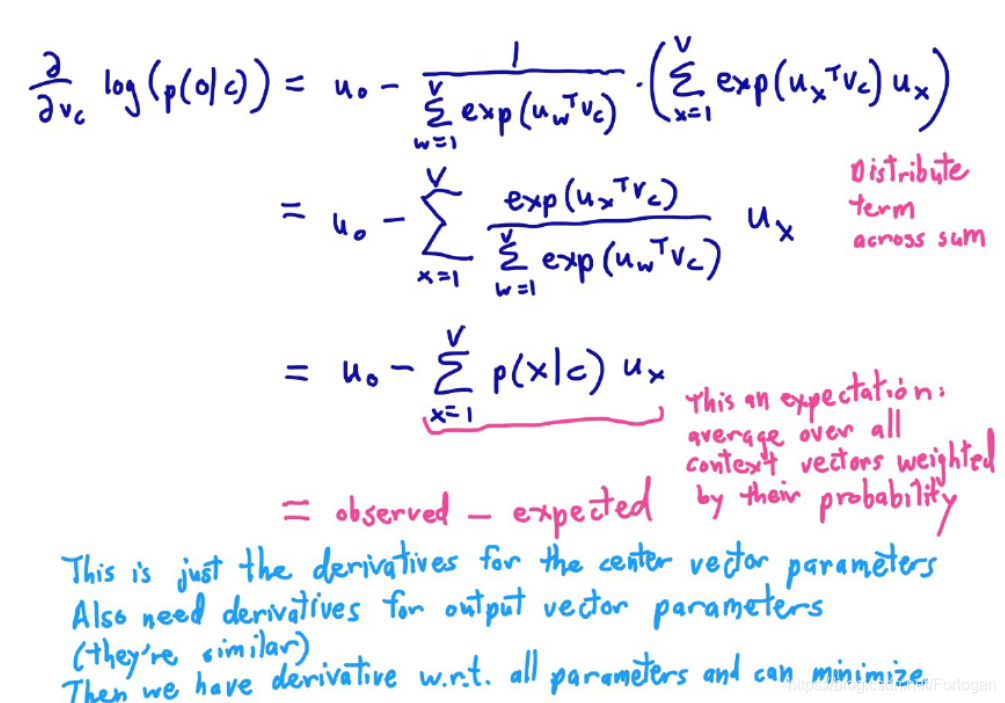 ∂/∂v_c log(p(o|c)) = u_o - 1/(∑_{w=1}^{V} exp(u_w^T v_c)) · (∑_{x=1}^{V} exp(u_x^T v_c) u_x)
= u_o - ∑_{x=1}^{V} exp(u_x^T v_c)/(∑_{w=1}^{V} exp(u_w^T v_c)) u_x
Distribute
term
across sum
= u_o - ∑_{x=1}^{V} p(x|c) u_x
This an expectation:
average over all
context vectors weighted
by their probability
= observed - expected
This is just the derivatives for the center vector parameters
Also need derivatives for output vector parameters
(they're similar)
Then we have derivative w.r.t. all parameters and can minimize
https://blog.csdn.net/Forlogen